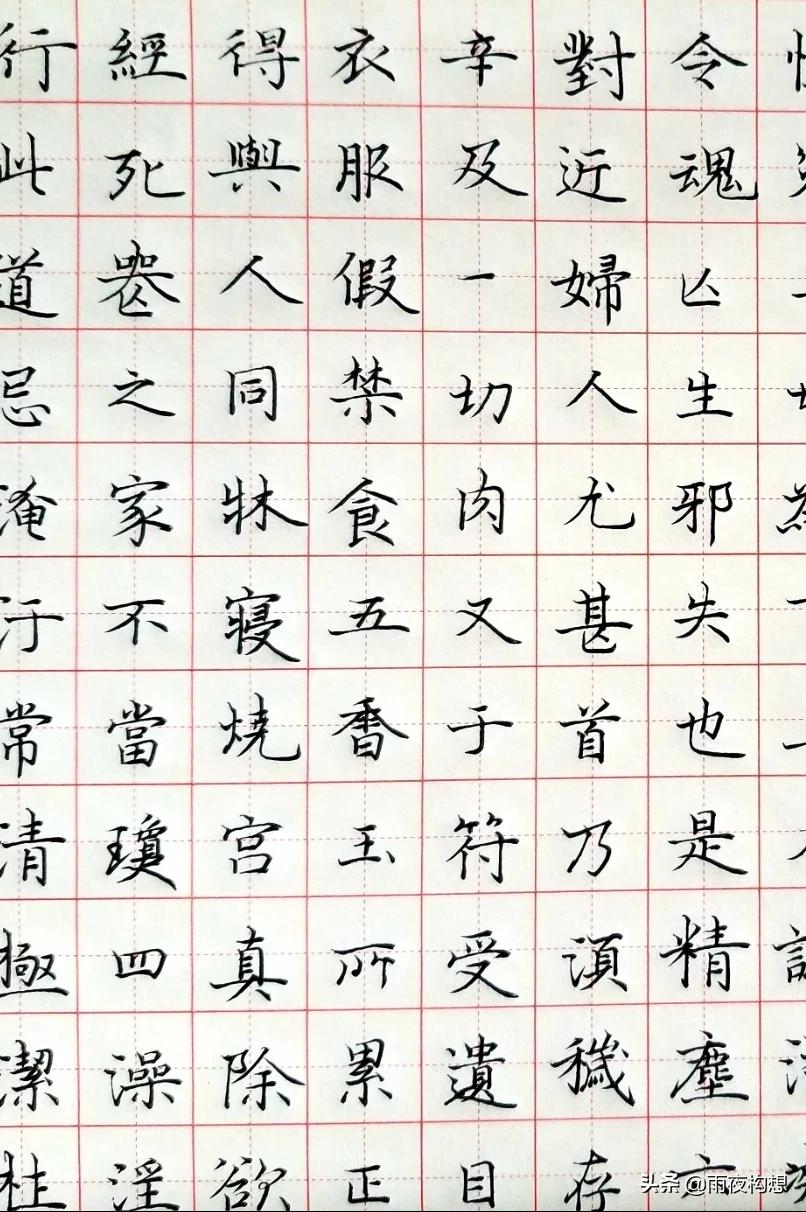 行經得衣辛對令
此死與服及近魂
道喪人假一婦亡
忌之同禁切人生
淹家牀食肉尤邪
汙不寢五又甚失
常當燒香于首也
清瓊宮玉符乃是
極四真所受須精
潔澡除累遺穢塵
杜淫欲正目存六
头条 @雨夜构想